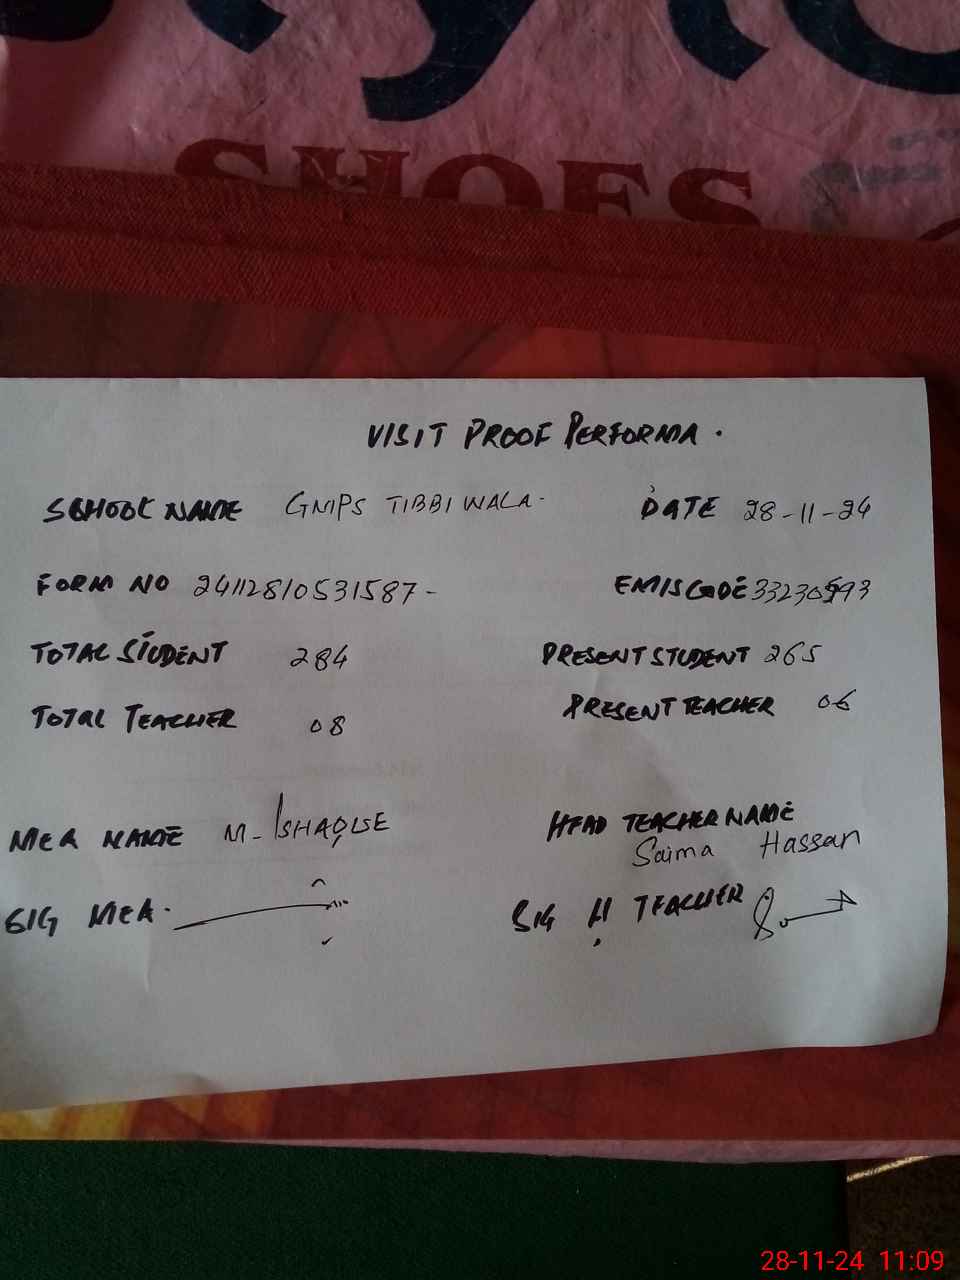 SHOES
VISIT PROOF PERFORMA.
SCHOOL NAME GMPS TIBBI WALA. DATE 28-11-24
FORM NO 24112810531587- EMIS CODE
TOTAL STUDENT 284 PRESENT STUDENT 265
TOTAL TEACHER 08 PRESENT TEACHER 06
MEA NAME M-ISHAQUE HEAD TEACHER NAME
Saima Hassan
SIG MEA. SIG H TEACHER
28-11-24 11:09